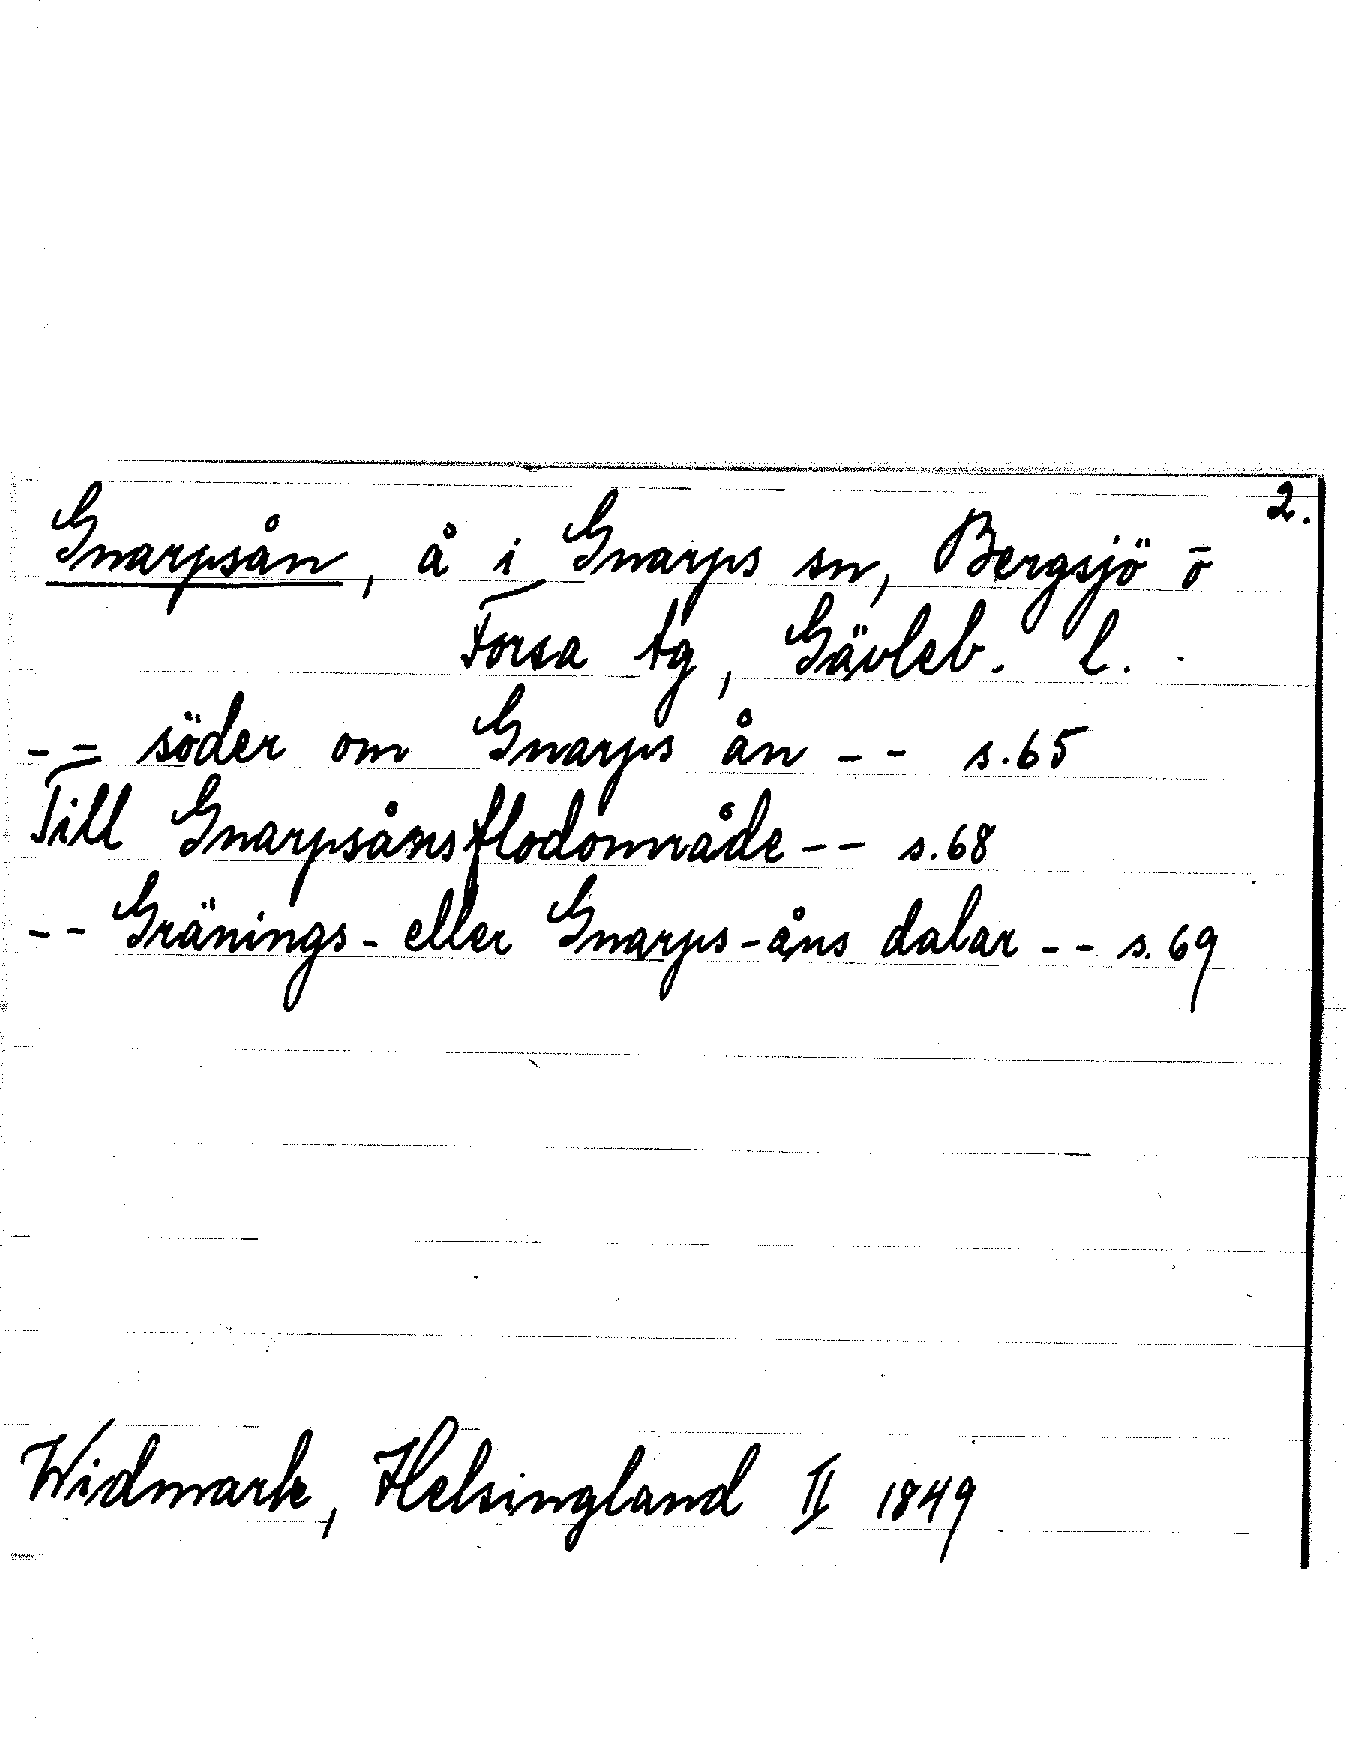 2.
Gnarpsån, å i Gnarps sn, Bergsjö o
Forsa tg, Gävleb. l.
-- söder om Gnarps ån -- s.65
Till Gnarpsåns flodområde -- s.68
-- Gränings- eller Gnarps-åns dalar -- s.69
Widmark, Helsingland II 1849